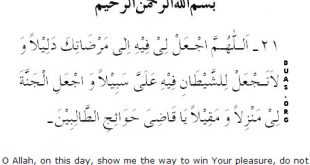 بِسْمِ اللهِ الرَّحْمٰنِ الرَّحِيْمِ
٢١ـ اَللّٰهُمَّ اجْعَلْ لِى فِيْهِ اِلٰى مَرْضَاتِكَ دَلِيْلاً وَ
لاَتَجْعَلْ لِلشَّيْطَانِ فِيْهِ عَلَىَّ سَبِيْلاً وَ اجْعَلِ الْجَنَّةَ
لِى مَنْزِلاً وَ مَقِيْلاً يَا قَاضِىَ حَوَائِجِ الطَّالِبِيْنَ۔
DUAS.ORG
O Allah, on this day, show me the way to win Your pleasure, do not